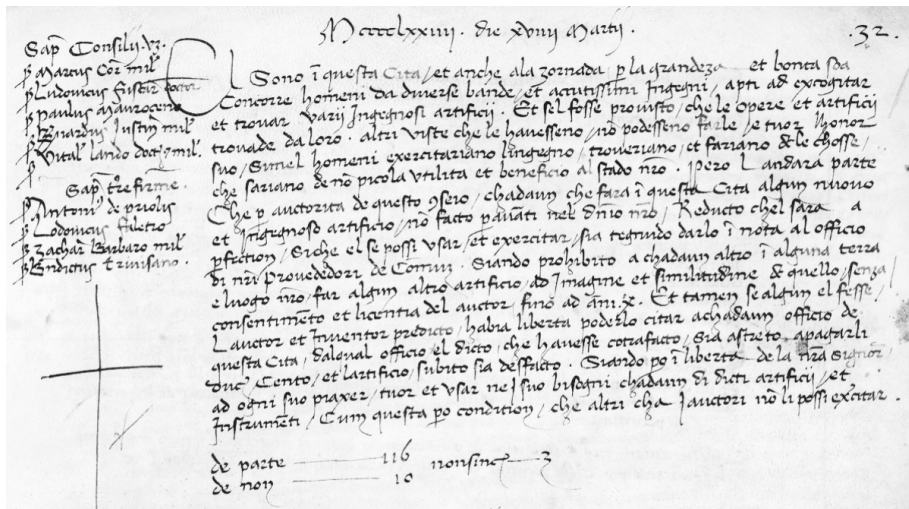 Mcccclxxiiii. die xviiii Martii.
.32.
Sap̄ Consilii. vz.
ꝑ Marcus Cor̄ mil̄
ꝑ Ludovicus fuscar doctor
ꝑ Paulus Mauroceno
ꝑ Bnardus Justin̄ mil̄
ꝑ Vital lando doct et mil̄.
Sap̄ t̄re firme.
ꝑ Antoni de priolis
ꝑ Lodovicus
ꝑ Zachar Barbaro mil̄
ꝑ Bndictus trivisano.
El Sono ī questa Cita / et anche ala zornada / ꝑ la grandeza et bonta soa
Concorre homeni da diverse bande / et acutissimi Ingegni / apti ad excogitar
et trovar varij Ingegnosi artificij. Et sel fosse provisto / che le opere et artificij
trovade da loro. altri viste che le havesseno / nō podesseno farle / e tuor l honor
suo / Simel homeni exercitariano lingegno / troveriano / et fariano de le chosse /
che sariano de nō picola utilita et beneficio al stado nr̄o. Pero L andara parte
Che ꝑ auctorita de questo ꝯseio / chadaun che fara ī questa Cita algun nuovo
et Ingegnoso artificio / nō facto ꝑavāti nel dn̄io nr̄o / Reducto chel sara a
ꝑfection / Siche el se possi usar / et exercitar / sia tegnudo darlo ī nota al officio
di nr̄i Provededori de Comun. Siando prohibito a chadaun altro ī alguna terra
e luogo nr̄o / far algun altro artificio / ad Imagine et similitudine de quello / senza
consentimēto et licentia del auctor / fino ad āni .x. Et tamen se algun el fesse /
L auctor et Inventor predicto / habia liberta poderlo citar achadaun officio de
questa Cita / dalqual officio el dicto / che havesse cōtrafacto / Sia astreto apagarli
Duc̄. Cento / et lartificio / subito sia desfacto. Siando po ī liberta de la nr̄a Signor̄
ad ogni suo piaxer / tuor et usar ne i suo bisogni chadaun di dicti artificij / et
Instrumēti / Cum questa po condition / che altri cha i auctori nō li possi exercitar.
de parte 116
de non 10
nonsincᵉ 3